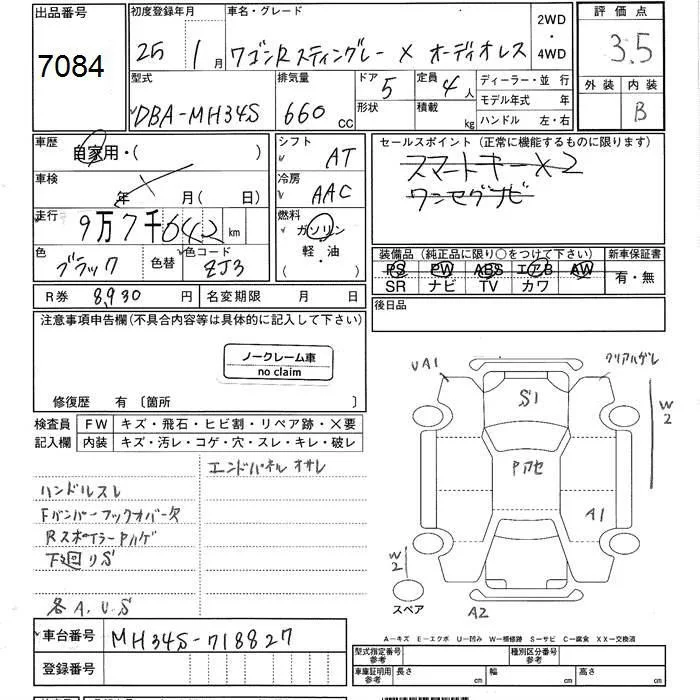 出品番号
7084
初度登録年月
25 1月
車名・グレード
ワゴンRスティングレー X オーディオレス
2WD
・
4WD
評価点
3.5
外装 内装
B
型式
DBA-MH34S
排気量
660 CC
ドア 5
形状
定員 4人
積載 kg
ディーラー・並行
モデル年式 年
ハンドル 左・右
車歴
自家用・( )
車検
年 月(日)
走行
9万7千642 km
色
ブラック
色替
色コード
ZJ3
シフト
AT
冷房
AAC
燃料
ガソリン
軽・油
・
セールスポイント(正常に機能するものに限ります)
スマートキーX2
ワンセグナビ
装備品(純正品に限り○をつけて下さい)
PS PW ABS エアB AW
SR ナビ TV カワ
新車保証書
有・無
R券 8,930 円
名変期限 月 日
後日品
注意事項申告欄(不具合内容等は具体的に記入して下さい)
ノークレーム車
no claim
修復歴 有〔箇所 〕
検査員
記入欄
FW キズ・飛石・ヒビ割・リペア跡・×要
内装 キズ・汚レ・コゲ・穴・スレ・キレ・破レ
エンドパネル オサレ
ハンドルスレ
Fバンパーフックオバー欠
RスポイラーPハゲ
下廻りS
各A.U.S
UA1
クリアハゲレ
S1
W2
Pアセ
A1
W2
スペア
A2
A—キズ E—エクボ U—凹み W—補修跡 S—サビ C—腐食 XX—交換済
車台番号
MH34S-718827
登録番号
型式指定番号
参考
種別区分番号
参考
車庫証明用
参考
長さ cm
幅 cm
高さ cm